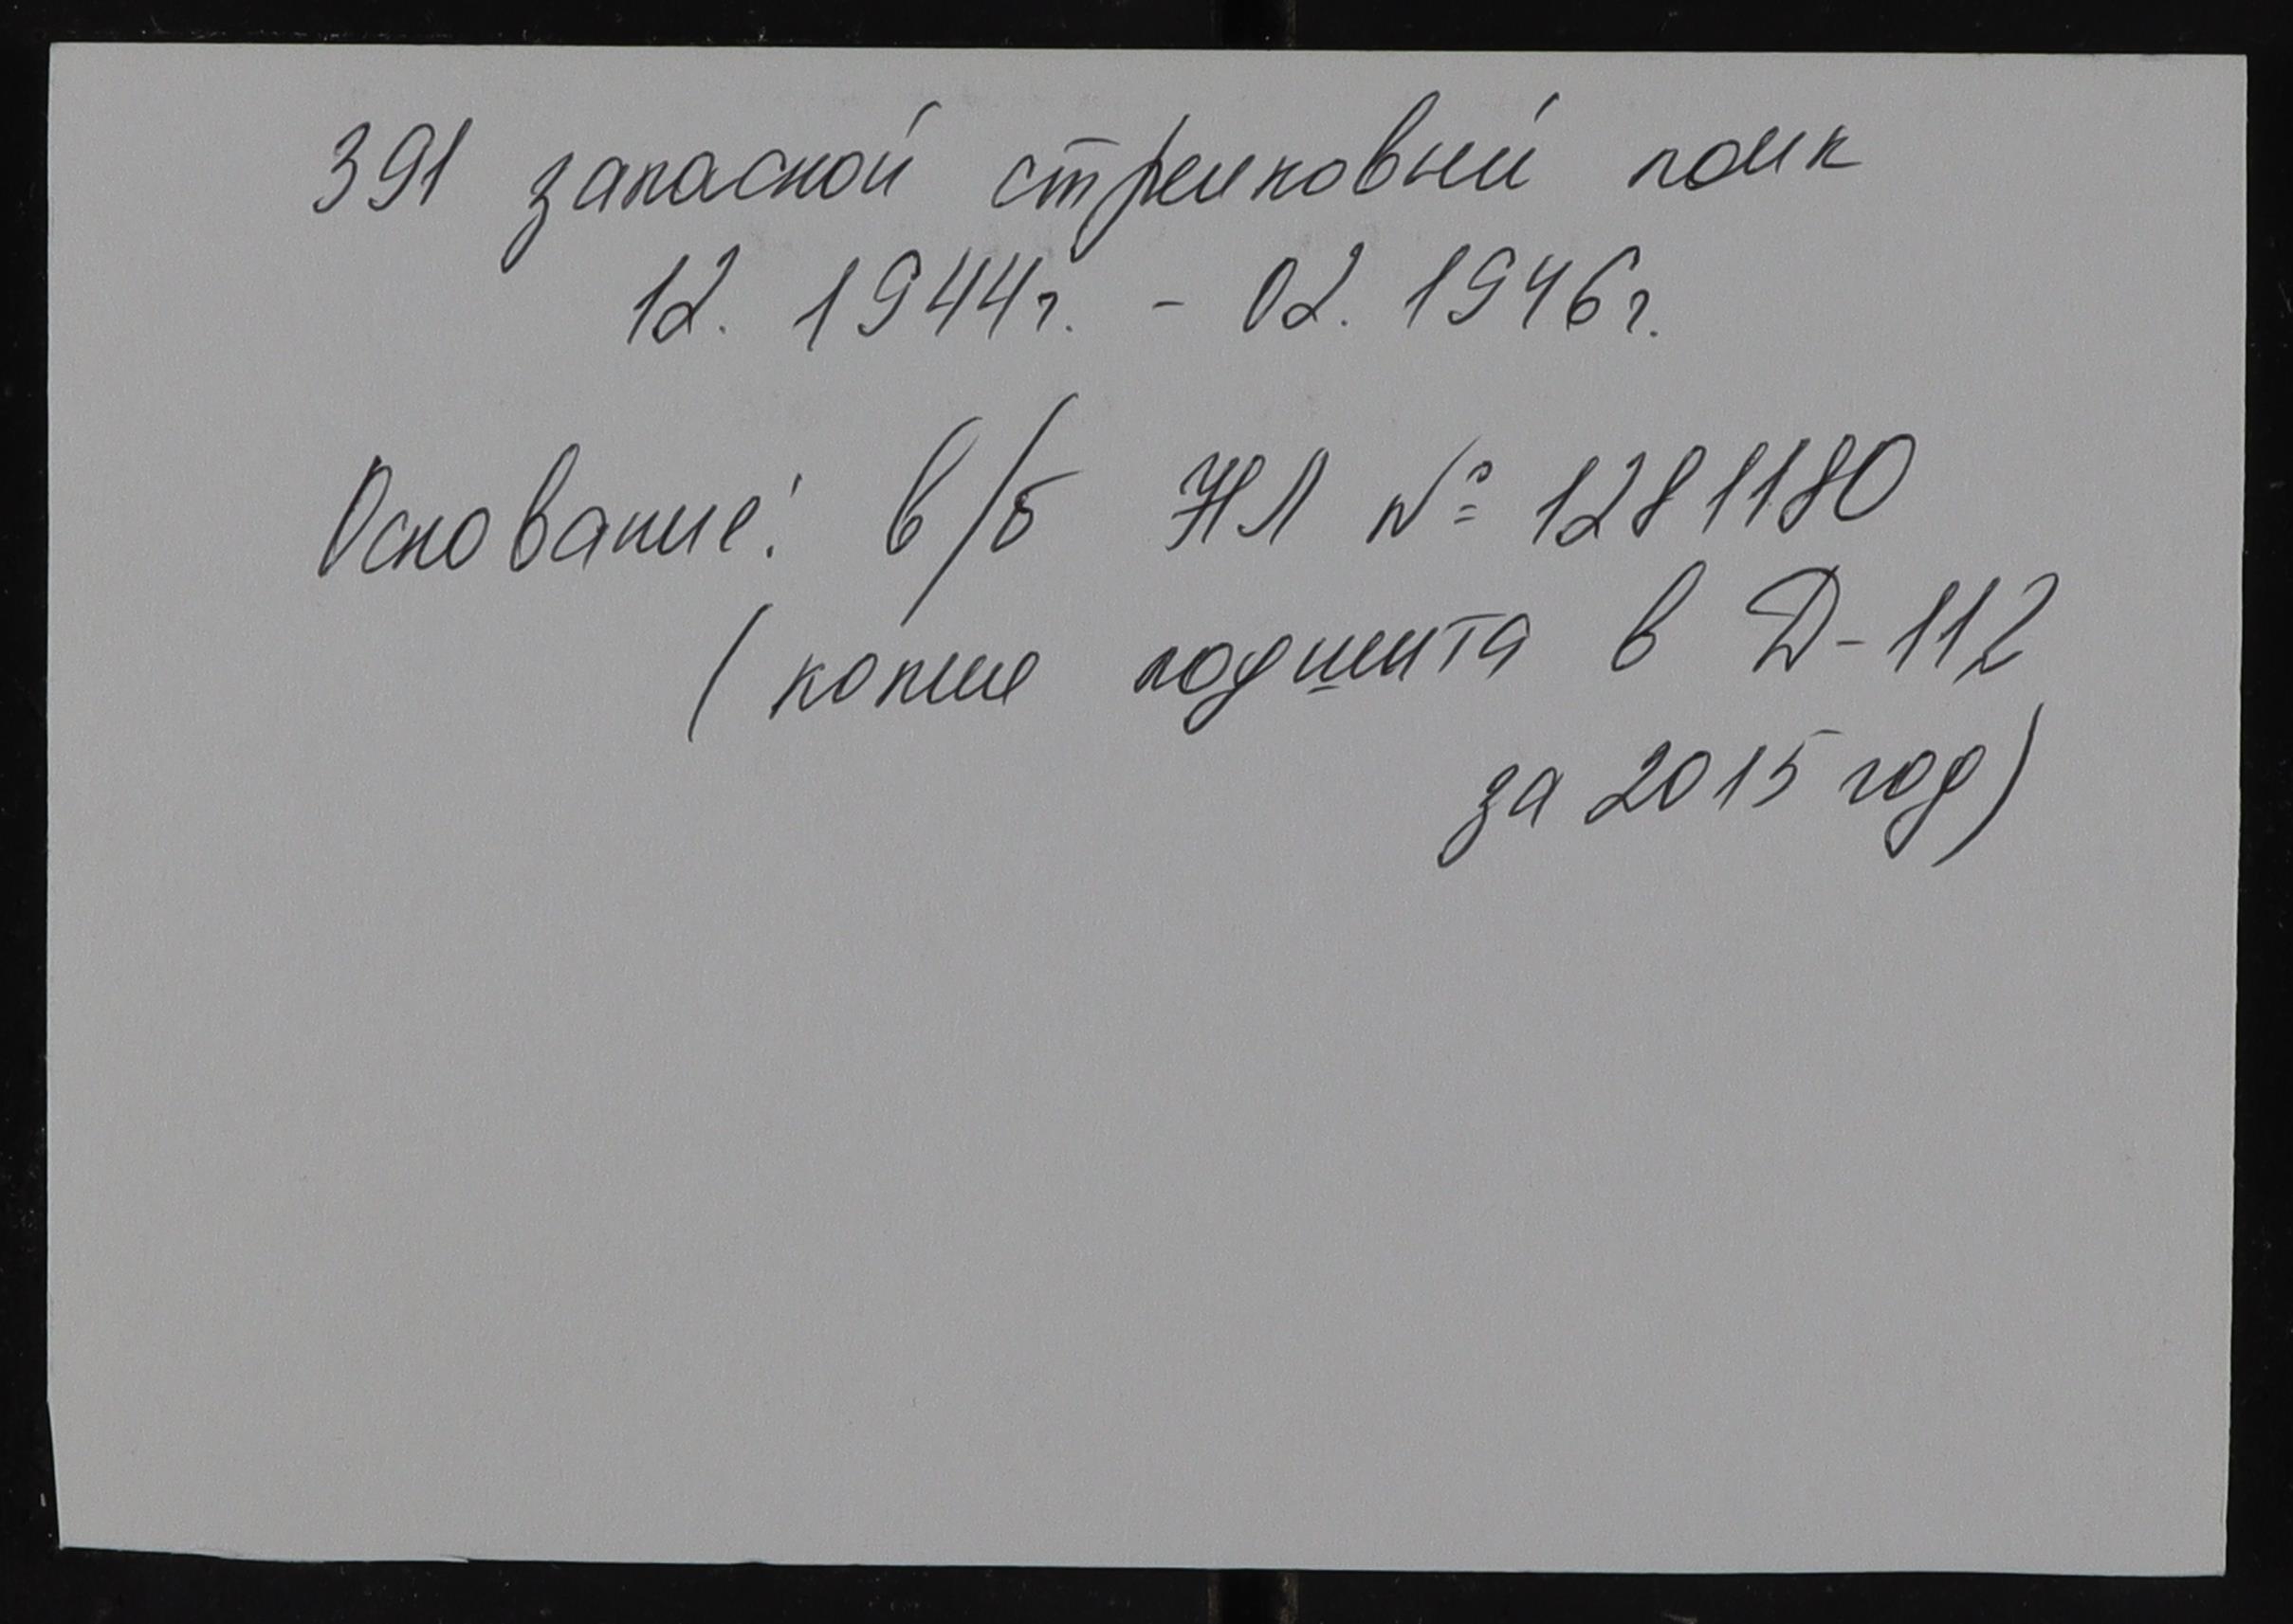 391 запасной стрелковый полк
12. 1944г. - 02. 1946г.
Основание: в/б НЛ № 1281180
(копия подшита в Д-112
за 2015 год)